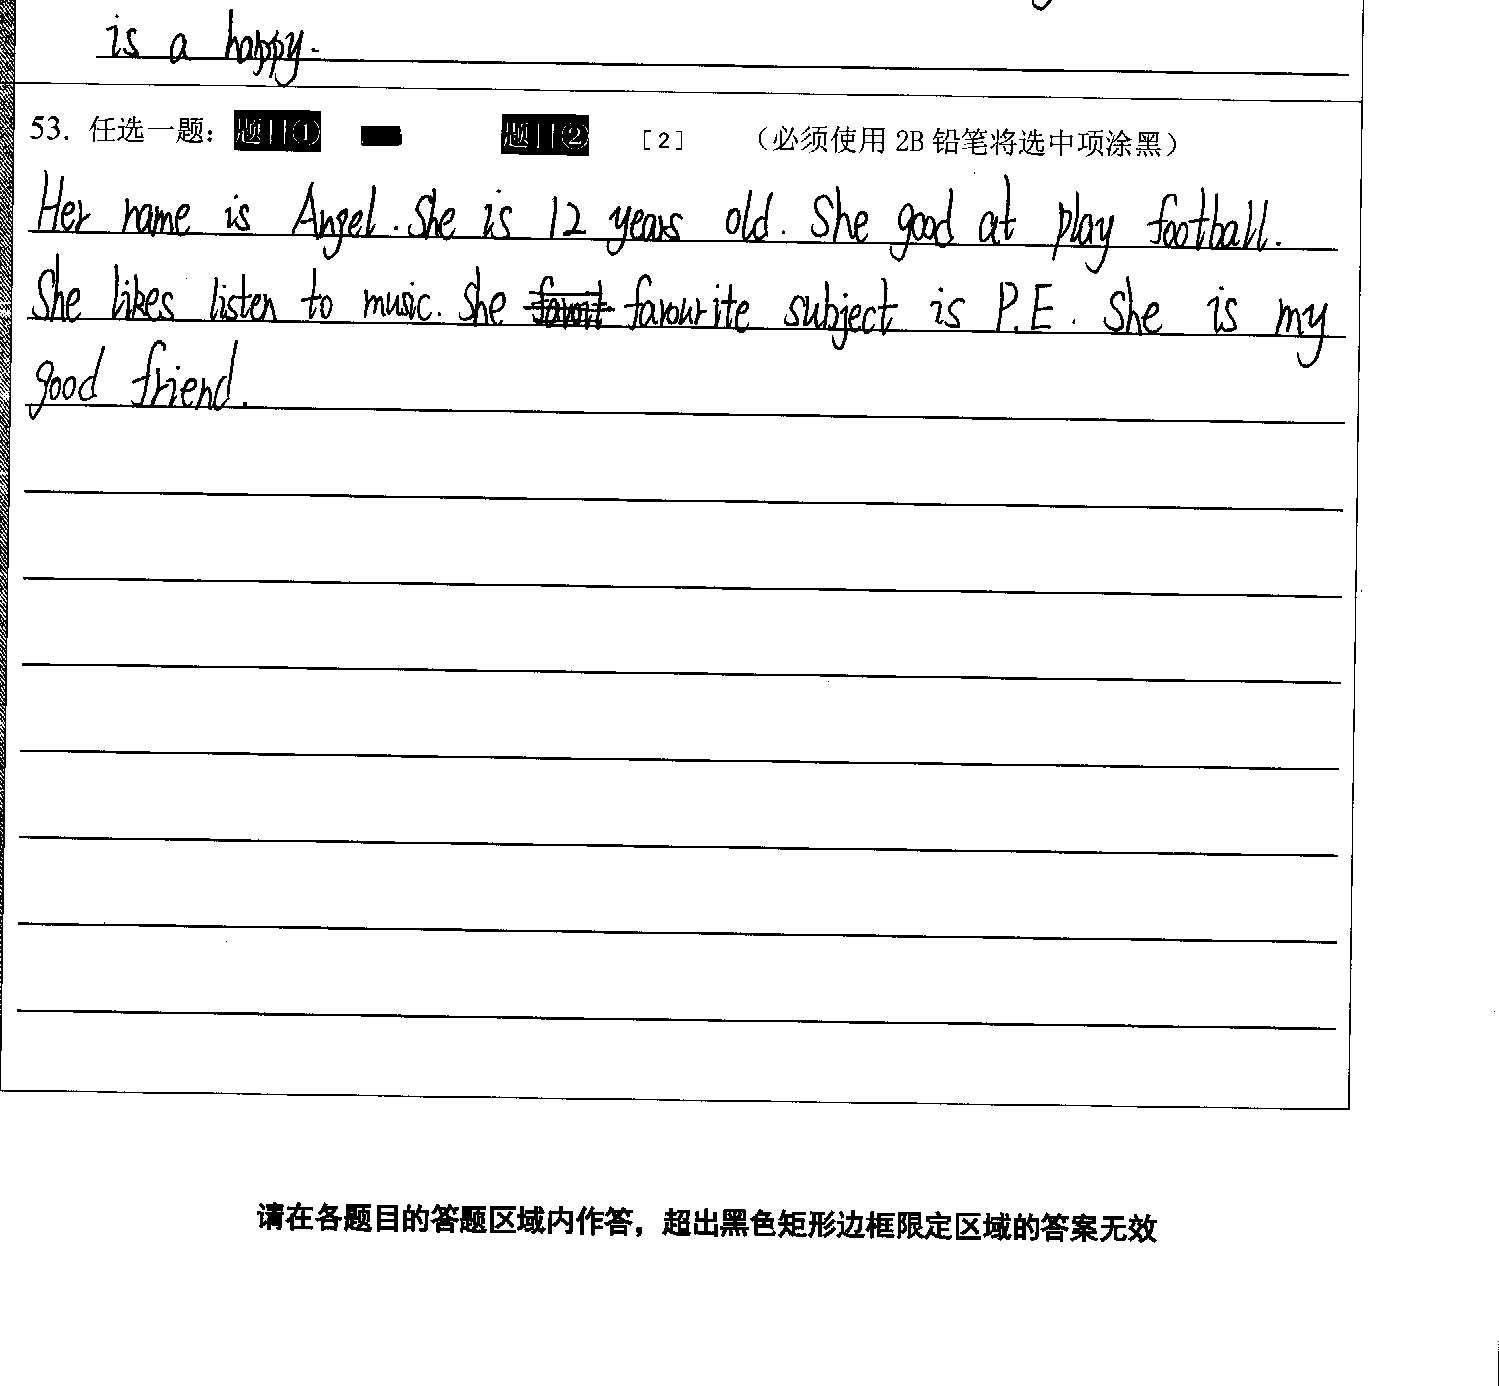 is a happy.
53. 任选一题： 题目① 题目② [2] （必须使用 2B 铅笔将选中项涂黑）
Her name is Angel. She is 12 years old. She good at play football.
She likes listen to music. She favourite subject is P.E. She is my
good friend.
请在各题目的答题区域内作答，超出黑色矩形边框限定区域的答案无效